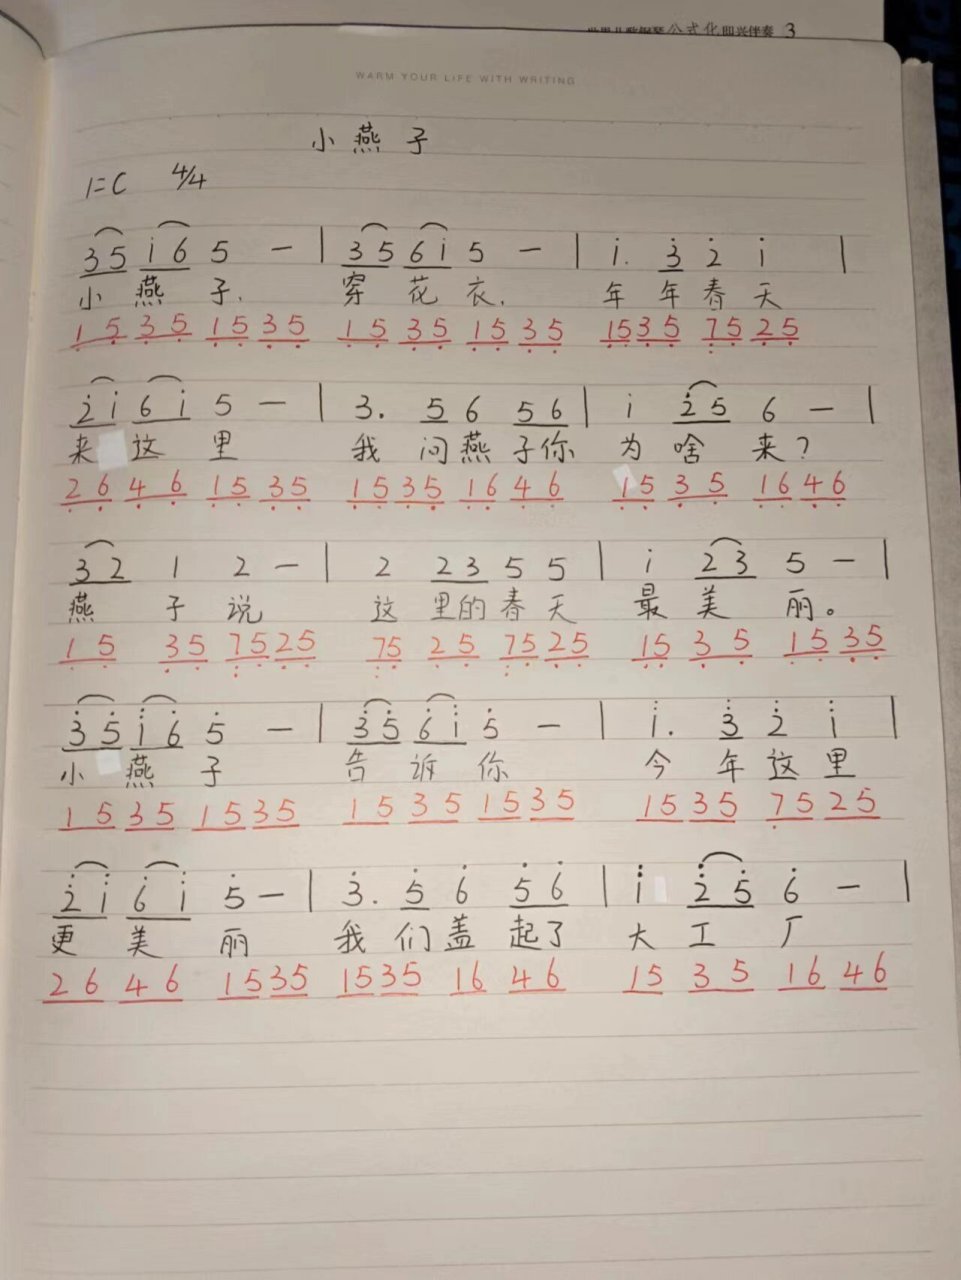 公式化即兴伴奏 3
WARM YOUR LIFE WITH WRITING
小燕子
1=C 4/4
3 5 i 6 5 — | 3 5 6 i 5 — | i. 3̇ 2̇ i |
小 燕 子, 穿 花 衣, 年 年 春 天
1̣ 5̣ 3̣ 5̣ 1̣ 5̣ 3̣ 5̣ 1̣ 5̣ 3̣ 5̣ 1̣ 5̣ 3̣ 5̣ 1̣ 5̣ 3̣ 5̣ 7̣ 5̣ 2̣ 5̣
2̇ i 6 i 5 — | 3. 5 6 5 6 | i 2̇ 5 6 — |
来 这 里 我 问 燕 子 你 为 啥 来?
2̣ 6̣ 4̣ 6̣ 1̣ 5̣ 3̣ 5̣ 1̣ 5̣ 3̣ 5̣ 1̣ 6̣ 4̣ 6̣ 1̣ 5̣ 3̣ 5̣ 1̣ 6̣ 4̣ 6̣
3 2 1 2 — | 2 2 3 5 5 | i 2 3 5 — |
燕 子 说 这 里 的 春 天 最 美 丽。
1̣ 5̣ 3̣ 5̣ 7̣ 5̣ 2̣ 5̣ 7̣ 5̣ 2̣ 5̣ 7̣ 5̣ 2̣ 5̣ 1̣ 5̣ 3̣ 5̣ 1̣ 5̣ 3̣ 5̣
3̇ 5̇ i̇ 6̇ 5̇ — | 3̇ 5̇ 6̇ i̇ 5̇ — | i̇. 3̇ 2̇ i̇ |
小 燕 子 告 诉 你 今 年 这 里
1 5 3 5 1 5 3 5 1 5 3 5 1 5 3 5 1 5 3 5 7̣ 5 2 5
2̇ i 6̇ i 5̇ — | 3̇. 5̇ 6̇ 5̇ 6̇ | i̇ 2̇ 5̇ 6̇ — |
更 美 丽 我 们 盖 起 了 大 工 厂
2 6 4 6 1 5 3 5 1 5 3 5 1 6 4 6 1 5 3 5 1 6 4 6